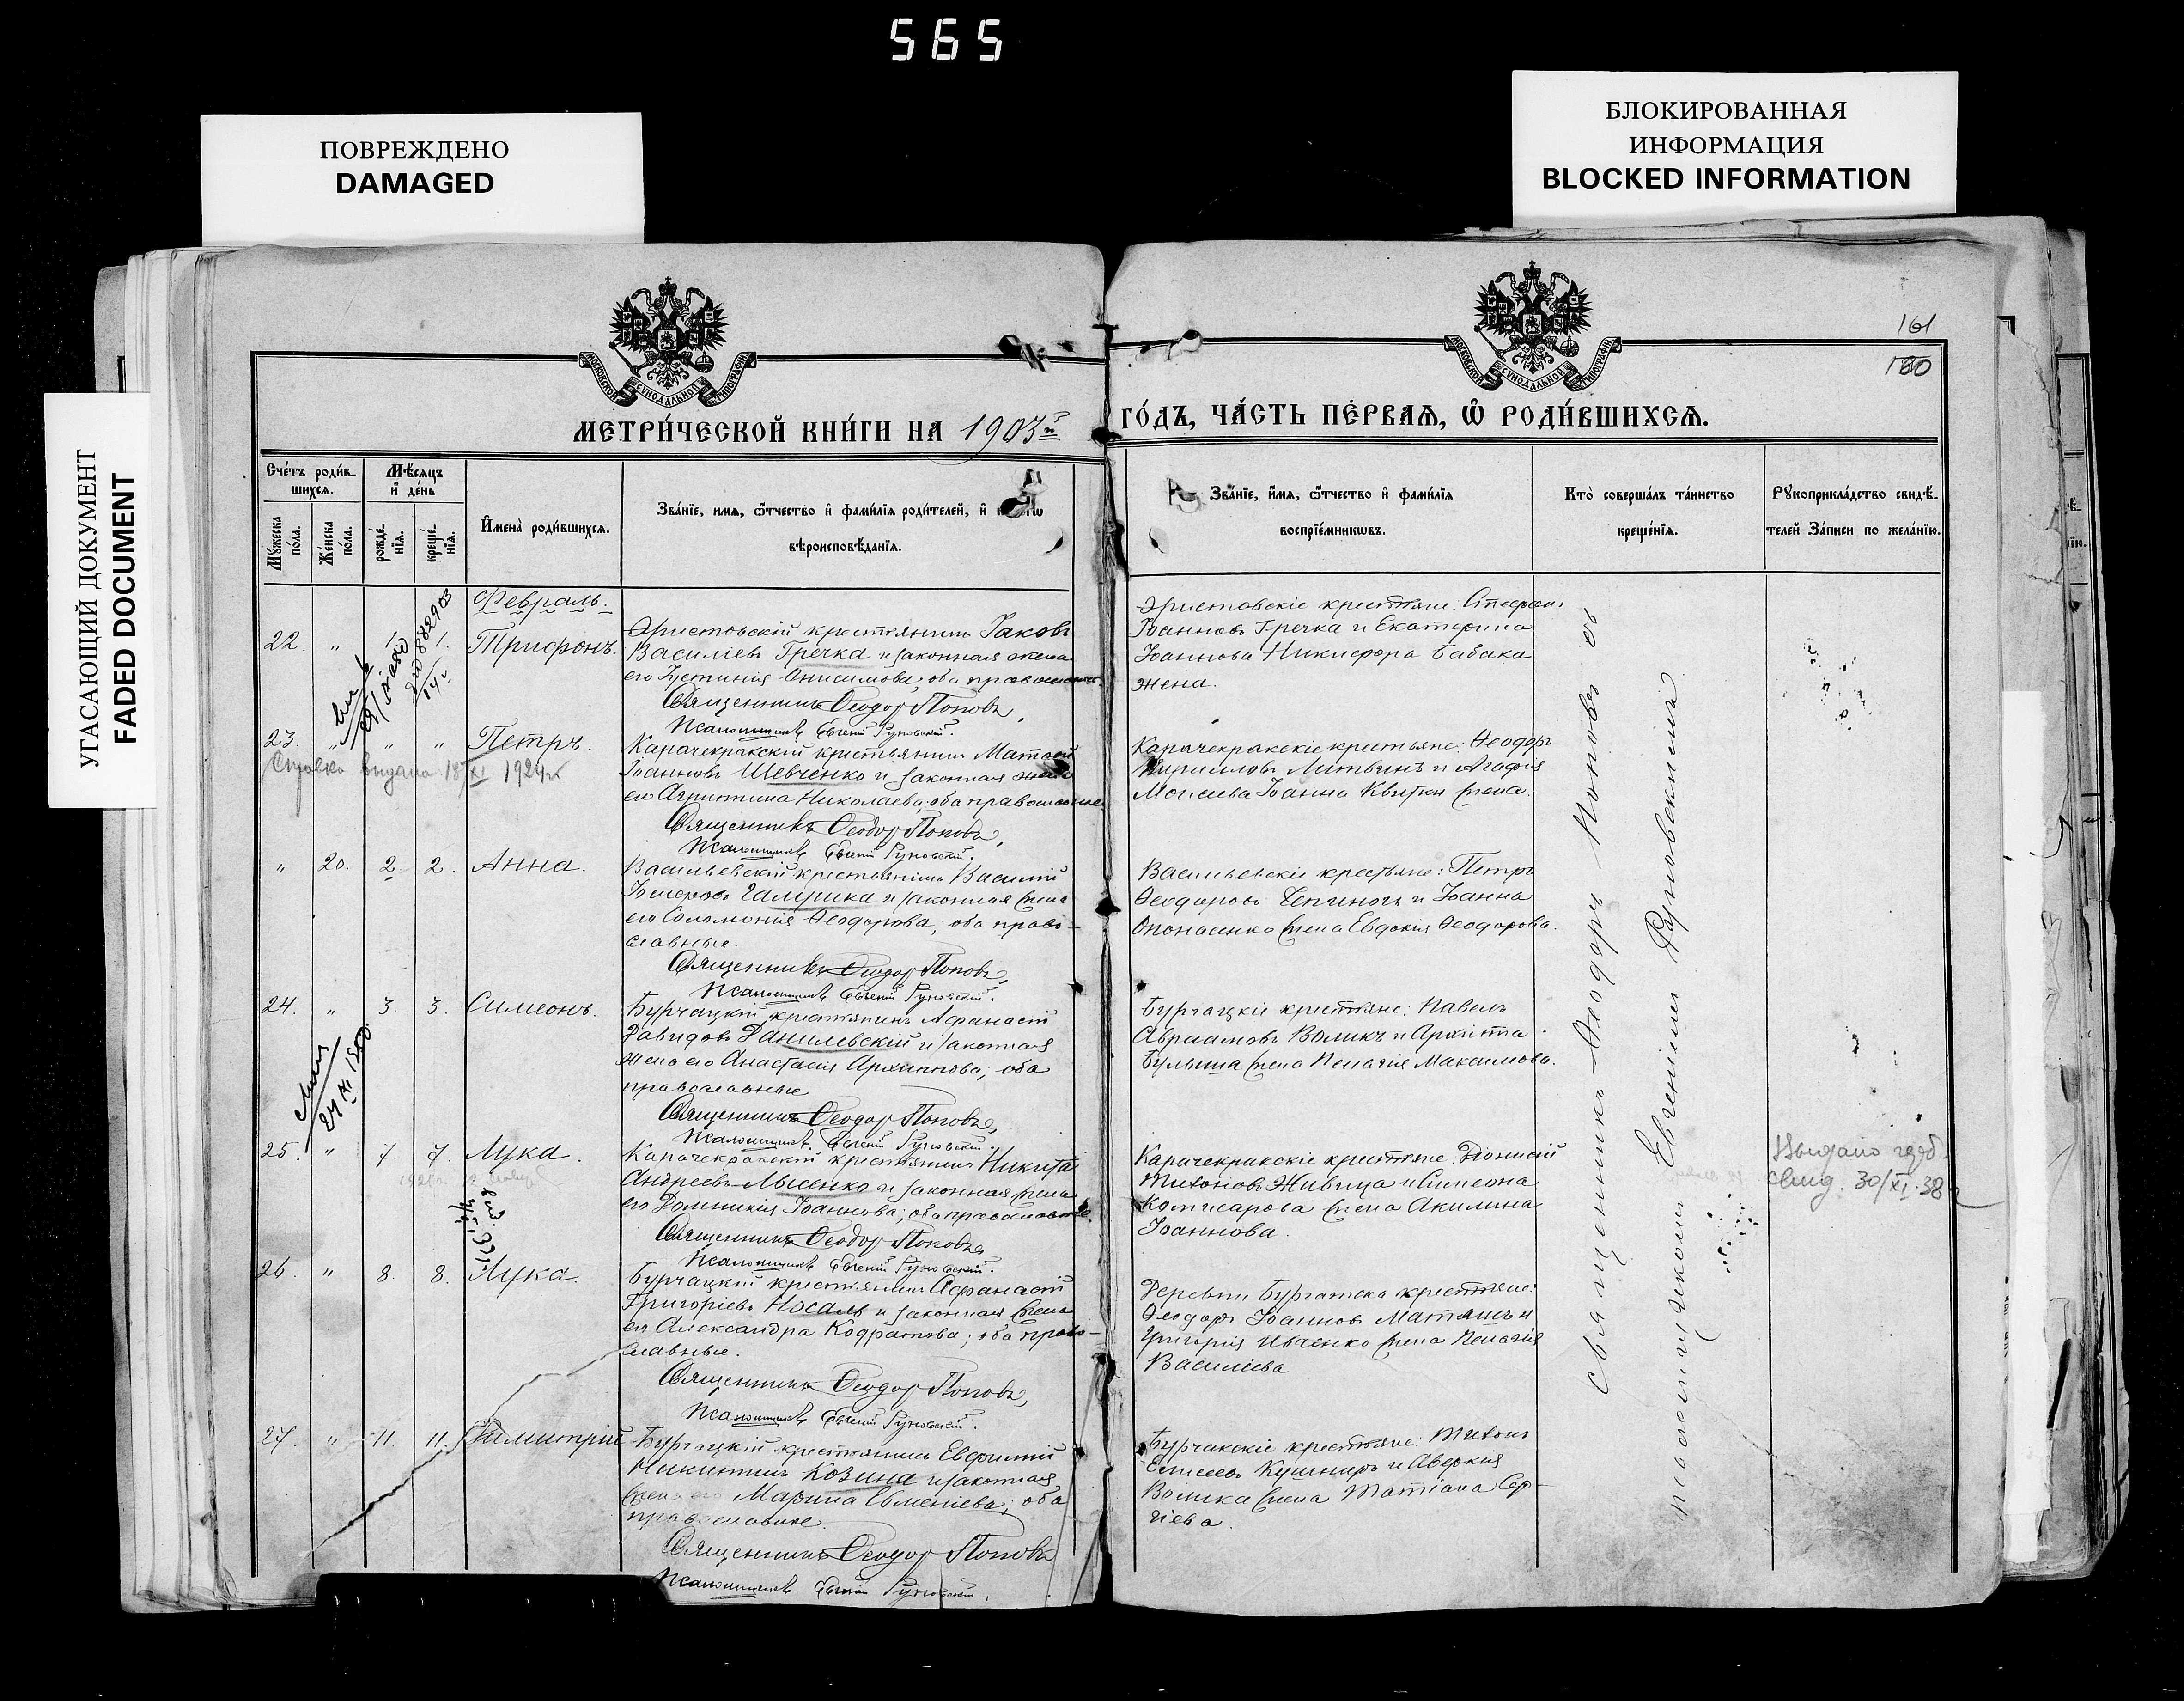 565
ПОВРЕЖДЕНО
DAMAGED
БЛОКИРОВАННАЯ
ИНФОРМАЦИЯ
BLOCKED INFORMATION
УГАСАЮЩИЙ ДОКУМЕНТ
FADED DOCUMENT
161
180
МОСКОВСКОЙ СУНОДАЛЬНОЙ ТИПОГРАФІИ
МОСКОВСКОЙ СУНОДАЛЬНОЙ ТИПОГРАФІИ
МЕТРИ́ЧЕСКОЙ КНИ́ГИ НА 1903й ГО́ДЪ, ЧА́СТЬ ПЕ́РВАѦ, Ѡ РОДИ́ВШИХСѦ.
Сче́тъ роди́в-
шихсѧ.
Мѣ́сѧцъ
и҆ де́нь
Мꙋ́жеска
по́ла.
Же́нска
по́ла.
рожде́-
нїѧ.
креще́-
нїѧ.
И҆мена̀ роди́вшихсѧ.
Зва́нїе, имѧ, ѻ҆́тчество и҆ фами́лїѧ роди́телей, и҆
вѣроисповѣ́данїѧ.
Зва́нїе, и҆́мѧ, ѻ҆́тчество и҆ фами́лїѧ
воспрїе́мникѡвъ.
Кто̀ соверша́лъ та́инство
креще́нїѧ.
Рꙋкоприкла́дство свидѣ́-
телей За́писи по жела́нїю.
Февраль.
22. " 1. 1. Трифонъ.
крестьянинъ Іаковъ
Василіевъ Гречка и законная жена
его Устинія Онисимова; оба православные.
Священникъ Ѳеодоръ Поповъ,
Псаломщикъ Евгеній Руновскій.
крестьяне: Стефанъ
Іоанновъ Гречка и Екатерина
Іоаннова Никифора Бабака
жена.
23. " " " Петръ.
Справка выдана 18/XI 1924
Карачекракскій крестьянинъ Матѳей
Іоанновъ Шевченко и законная жена
его Агриппина Николаева; оба православные
Священникъ Ѳеодоръ Поповъ,
Псаломщикъ Евгеній Руновскій.
Карачекракскіе крестьяне: Ѳеодоръ
Кирилловъ Литвинъ и Агафія
Моисеева Іоанна Квитки жена.
" 20. 2. 2. Анна.
Васильевскій крестьянинъ Василій
Галушка и законная жена
его Соломонія Ѳеодорова; оба право-
славные.
Священникъ Ѳеодоръ Поповъ,
Псаломщикъ Евгеній Руновскій.
Васильевскіе крестьяне: Петръ
Ѳеодоровъ и Іоанна
жена Евдокія Ѳеодорова.
24. " 3. 3. Симеонъ.
Бурчацкій крестьянинъ Афанасій
Давидовъ Данилевскій и законная
жена его Анастасія Архиппова; оба
православные
Священникъ Ѳеодоръ Поповъ,
Псаломщикъ Евгеній Руновскій.
Бурчацкіе крестьяне: Павелъ
Авраамовъ Воликъ и Архиппа
жена Пелагія Максимова.
25. " 7. 7. Лука.
Карачекракскій крестьянинъ Никита
Андреевъ Лысенко и законная жена
его Домникія Іоаннова; оба православные
Священникъ Ѳеодоръ Поповъ
Псаломщикъ Евгеній Руновскій.
Карачекракскіе крестьяне: Діонисій
Тихоновъ Живица и Симеона
Комисарова жена Акилина
Іоаннова.
Выдано
свид. 30/XI 38
26. " 8. 8. Лука.
Бурчацкій крестьянинъ Афанасій
Григоріевъ Носаль и законная жена
его Александра Кодратова; оба право-
славные.
Священникъ Ѳеодоръ Поповъ,
Псаломщикъ Евгеній Руновскій.
Деревни Бурчатска крестьяне:
Ѳеодоръ Іоанновъ Матяшъ и
Григорія Ивченко жена Пелагія
Василіева
27. " 11. 11. Димитрій
Бурчацкій крестьянинъ Евфимій
Никитинъ Козина и законная
жена его Марина Евменіева; оба
православные.
Священникъ Ѳеодоръ Поповъ
Псаломщикъ Евгеній Руновскій.
Бурчакскіе крестьяне: Тихонъ
Елисеевъ Кушниръ и Аверкія
Волика жена Татіана Сер-
гіева.
Священникъ Ѳеодоръ Поповъ съ
псаломщикомъ Евгеніемъ Руновскимъ